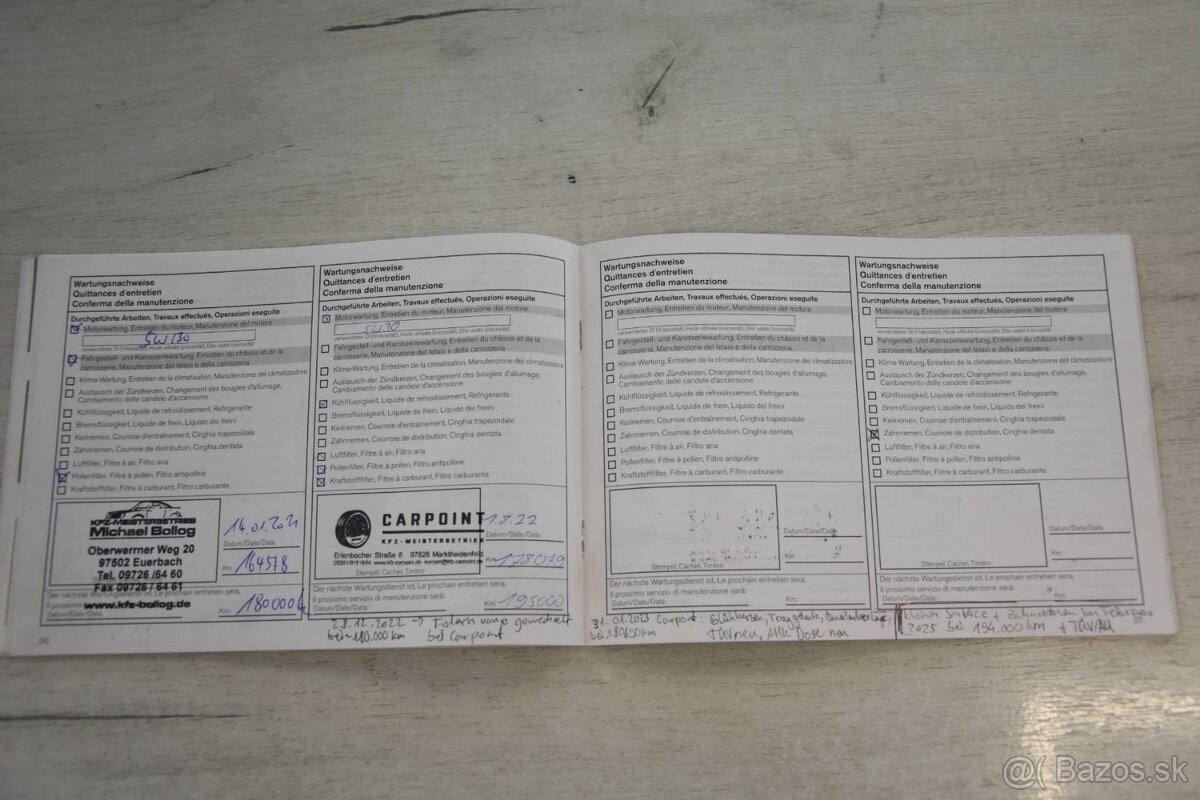 Wartungsnachweise
Quittances d'entretien
Conferma della manutenzione
Durchgeführte Arbeiten, Travaux effectués, Operazioni eseguite
Motorwartung, Entretien du moteur, Manutenzione del motore
5W30
verwendetes Öl (Viskosität), Huile utilisée (viscosité), Olio usato (viscosità)
Fahrgestell- und Karosseriewartung, Entretien du châssis et de la
carrosserie, Manutenzione del telaio e della carrozzeria
Klima-Wartung, Entretien de la climatisation, Manutenzione del climatizzatore
Austausch der Zündkerzen, Changement des bougies d'allumage,
Cambiamento delle candele d'accensione
Kühlflüssigkeit, Liquide de refroidissement, Refrigerante
Bremsflüssigkeit, Liquide de frein, Liquido dei freini
Keilriemen, Courroie d'entraînement, Cinghia trapezoidale
Zahnriemen, Courroie de distribution, Cinghia dentata
Luftfilter, Filtre à air, Filtro aria
Pollenfilter, Filtre à pollen, Filtro antipolline
Kraftstofffilter, Filtre à carburant, Filtro carburante
KFZ-MEISTERBETRIEB
Michael Bollog
Oberwerrner Weg 20
97502 Euerbach
Tel. 09726 /64 60
Fax 09726 / 64 61
www.kfz-bollog.de
14.01.2021
Datum/Date/Data
Km 164578
Der nächste Wartungsdienst ist, Le prochain entretien sera,
Il prossimo
Datum/Date/Data:
Km: 180000
Wartungsnachweise
Quittances d'entretien
Conferma della manutenzione
Durchgeführte Arbeiten, Travaux effectués, Operazioni eseguite
Motorwartung, Entretien du moteur, Manutenzione del motore
5W30
verwendetes Öl (Viskosität), Huile utilisée (viscosité), Olio usato (viscosità)
Fahrgestell- und Karosseriewartung, Entretien du châssis et de la
carrosserie, Manutenzione del telaio e della carrozzeria
Klima-Wartung, Entretien de la climatisation, Manutenzione del climatizzatore
Austausch der Zündkerzen, Changement des bougies d'allumage,
Cambiamento delle candele d'accensione
Kühlflüssigkeit, Liquide de refroidissement, Refrigerante
Bremsflüssigkeit, Liquide de frein, Liquido dei freini
Keilriemen, Courroie d'entraînement, Cinghia trapezoidale
Zahnriemen, Courroie de distribution, Cinghia dentata
Luftfilter, Filtre à air, Filtro aria
Pollenfilter, Filtre à pollen, Filtro antipolline
Kraftstofffilter, Filtre à carburant, Filtro carburante
CARPOINT
KFZ-MEISTERBETRIEB
Erlenbacher Straße 6 97828 Marktheidenfeld
Stempel, Cachet, Timbro
1.8.22
Datum/Date/Data
Km 178079
Der nächste Wartungsdienst ist, Le prochain entretien sera,
Il prossimo servizio di manutenzione sarà:
Datum/Date/Data:
Km: 195000
28.12.2022 →
bei 180.000 km bei Carpoint
Wartungsnachweise
Quittances d'entretien
Conferma della manutenzione
Durchgeführte Arbeiten, Travaux effectués, Operazioni eseguite
Motorwartung, Entretien du moteur, Manutenzione del motore
verwendetes Öl (Viskosität), Huile utilisée (viscosité), Olio usato (viscosità)
Fahrgestell- und Karosseriewartung, Entretien du châssis et de la
carrosserie, Manutenzione del telaio e della carrozzeria
Klima-Wartung, Entretien de la climatisation, Manutenzione del climatizzatore
Austausch der Zündkerzen, Changement des bougies d'allumage,
Cambiamento delle candele d'accensione
Kühlflüssigkeit, Liquide de refroidissement, Refrigerante
Bremsflüssigkeit, Liquide de frein, Liquido dei freini
Keilriemen, Courroie d'entraînement, Cinghia trapezoidale
Zahnriemen, Courroie de distribution, Cinghia dentata
Luftfilter, Filtre à air, Filtro aria
Pollenfilter, Filtre à pollen, Filtro antipolline
Kraftstofffilter, Filtre à carburant, Filtro carburante
Stempel, Cachet, Timbro
Datum/Date/Data
Km
Der nächste Wartungsdienst ist, Le prochain entretien sera,
Il prossimo servizio di manutenzione sarà:
Datum/Date/Data:
Km:
31.01.2023 Carpoint: Glühkerzen, Traggelenke,
bei 180690km AHK Dose neu
Wartungsnachweise
Quittances d'entretien
Conferma della manutenzione
Durchgeführte Arbeiten, Travaux effectués, Operazioni eseguite
Motorwartung, Entretien du moteur, Manutenzione del motore
verwendetes Öl (Viskosität), Huile utilisée (viscosité), Olio usato (viscosità)
Fahrgestell- und Karosseriewartung, Entretien du châssis et de la
carrosserie, Manutenzione del telaio e della carrozzeria
Klima-Wartung, Entretien de la climatisation, Manutenzione del climatizzatore
Austausch der Zündkerzen, Changement des bougies d'allumage,
Cambiamento delle candele d'accensione
Kühlflüssigkeit, Liquide de refroidissement, Refrigerante
Bremsflüssigkeit, Liquide de frein, Liquido dei freini
Keilriemen, Courroie d'entraînement, Cinghia trapezoidale
Zahnriemen, Courroie de distribution, Cinghia dentata
Luftfilter, Filtre à air, Filtro aria
Pollenfilter, Filtre à pollen, Filtro antipolline
Kraftstofffilter, Filtre à carburant, Filtro carburante
Stempel, Cachet, Timbro
Datum/Date/Data
Km
Der nächste Wartungsdienst ist, Le prochain entretien sera,
Il prossimo servizio di manutenzione sarà:
Datum/Date/Data:
Km:
Service + Zahnriemen im Februar
2025 bei 194.000 km + TÜV/AU
Bazos.sk